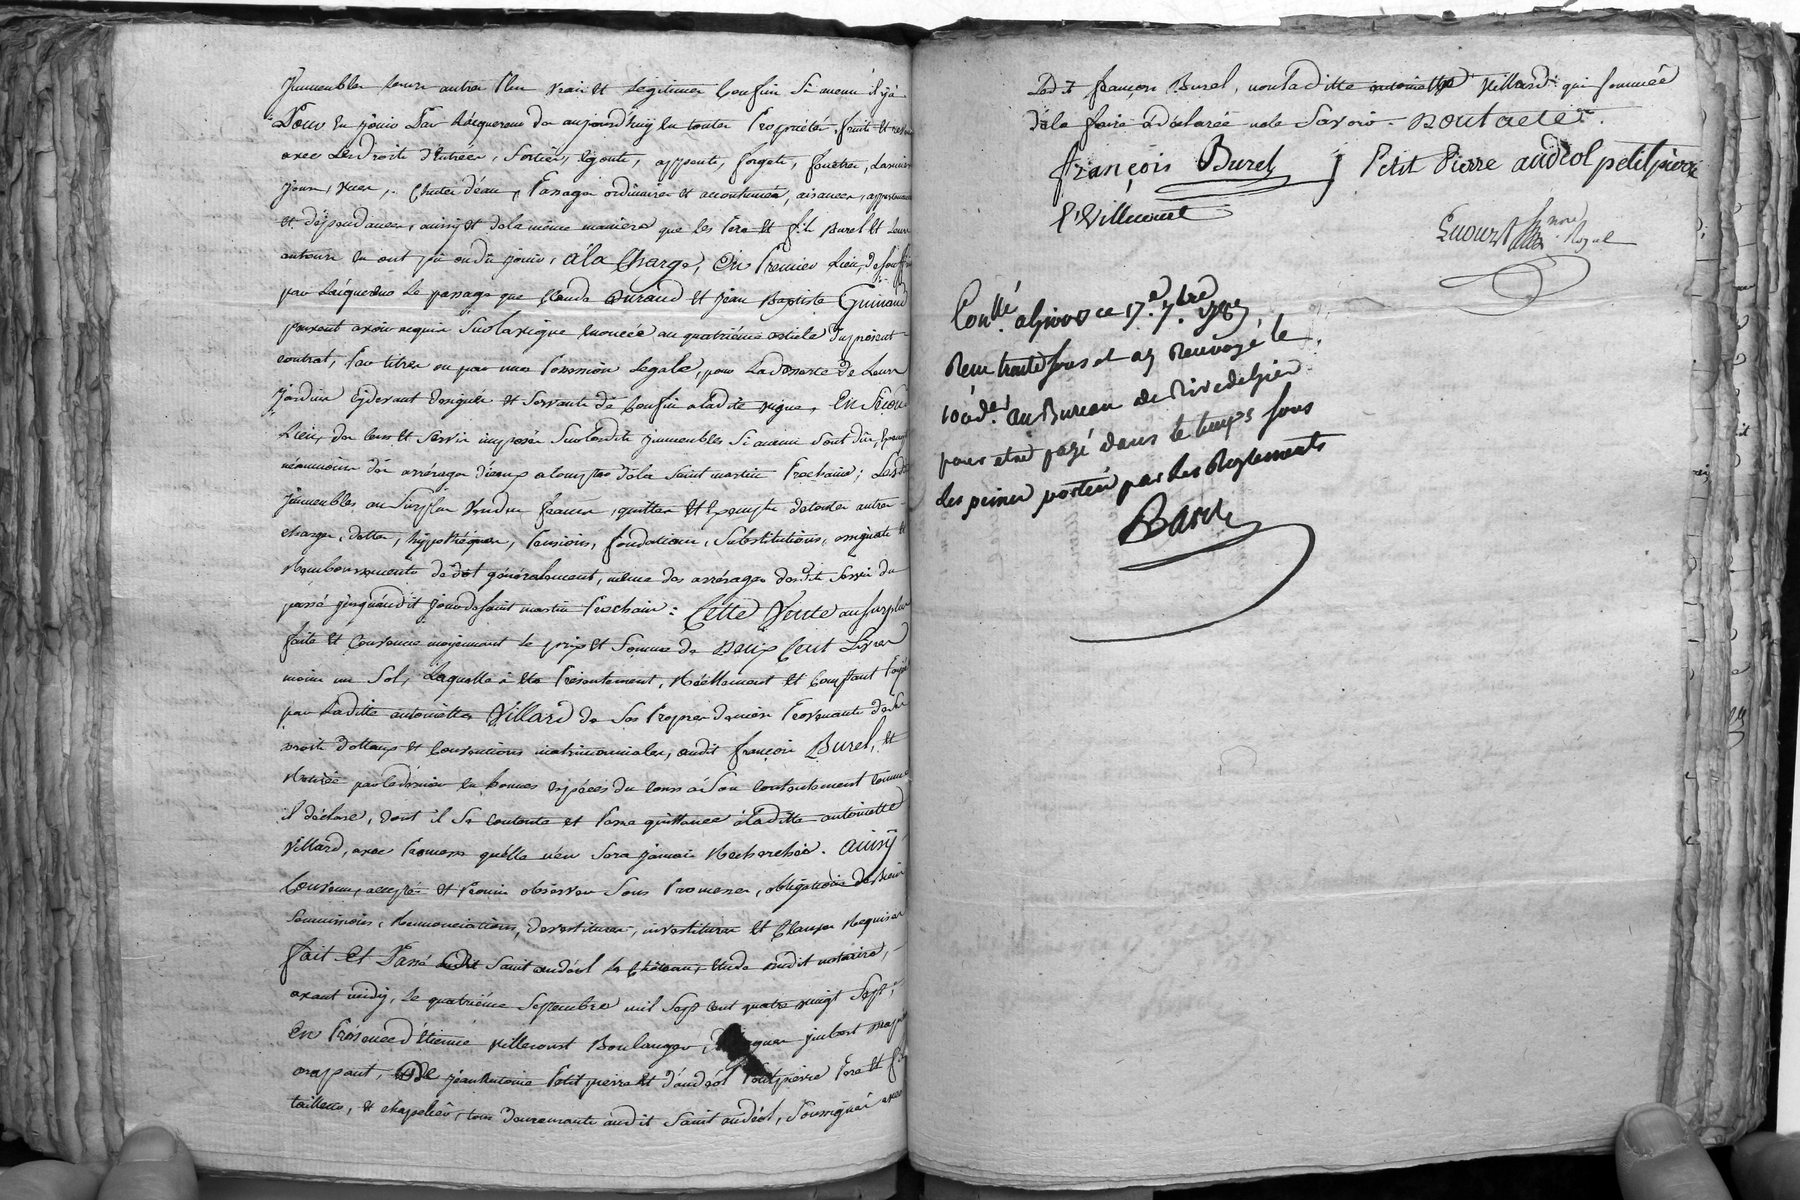 jmmeubles leurs autres plus vrais et Légitimes Confins Si aucun il y a
Pour En jouir Par Lacquereur des aujourd'huy en toutte Propriété, fruits et
avec Les Droits d'Entrées, Sorties, Egouts, appents, forgets, fenêtres,
jours, vues, Chutes d'eau, Passages ordinaires et accoutumés, aisances,
et dépendances, aussy et de la même maniere que les Pere et fils Burel et Leurs
auteurs en ont joui ou dû jouir, à la Charge, En Premier Lieu, de souffrir
par Lacquereur Le passage que Claude Durand et jean Baptiste Guinand
peuvent avoir acquis Sur la vigne énoncée au quatriéme article du present
contrat, Par titres ou par une Possession Légale, pour La desserte de Leurs
jardins cydevant désignés et Servants de Confin a ladite vigne, En Second
Lieu, des Cens et Servis imposés Sur Lesdits jmmeubles Si aucuns sont dûs,
néanmoins des arrérages d'iceux a compter de la Saint martin Prochaine; Lesdits
jmmeubles au Surplus Vendus francs, quittes Et Exempts de toutes autres
charges, dettes, hypothéques, Pensions, fondations, Substitutions,
Remboursements de dot généralement, même des arrérages desdits Servis du
passé jusqu'audit jour de saint martin Prochain: Cette Vente au surplus
faite et Convenue moyennant le prix et Somme de Deux Cent Livres
moins un Sol, Laquelle à été Présentement, Réellement et Comptant Payée
par Laditte antoinette Villard de Ses Propres deniers Provenants de Ses
droits dottaux et Conventions matrimoniales, audit françois Burel, et
Retirée par le dernier en bonnes espéces du Cours à Son Contentement Comme
il déclare, dont il Se Contente et Passe quittance à Laditte antoinette
Villard, avec Promesse qu'elle n'en Sera jamais Recherchée. Aussy
Convenu, accepté et Promis observer Sous Promesses, obligations de Biens
Soumissions, Renonciations, devestitures, investitures et Clauses Requises
fait et Passé audit Saint andéol le Château, Etude dudit notaire,
avant midy, Le quatriéme Septembre mil Sept cent quatre vingt Sept,
En Présence d'étienne villecourt Boulanger, jubert
jean antoine Petit pierre et d'andéol Petitpierre Pere et fils
tailleur, et chapelier, tous demeurants audit Saint andéol, Soussignés avec
Ledit françois Burel, non Laditte antoinette Villard qui sommée
de le faire à déclarée ne le Savoir. Dont acte.
françois Burel j Petit Pierre andéol petit pierre
E Villecourt
nore Royal
Conllé a Givors ce 17.e 7.bre 1787
Reçu trente sous et ay Renvoyé le
100.e d.er au Bureau de Rivedegier
pour etre payé dans le temps sous
les peines portées par les Reglements
Bard